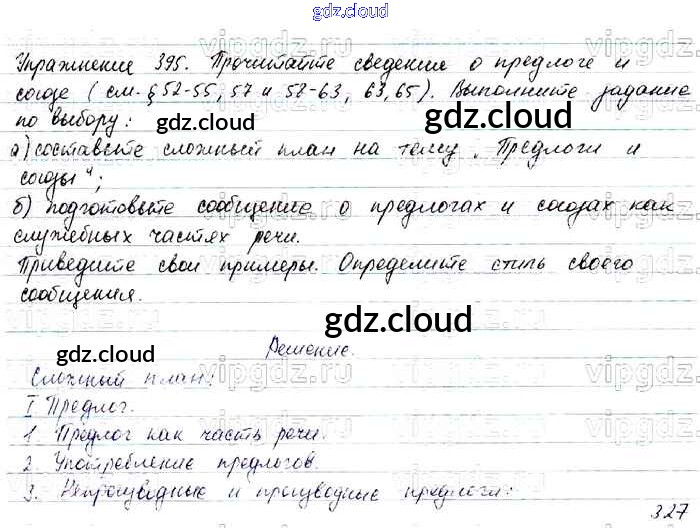 gdz.cloud
Упражнение 395. Прочитайте сведения о предлоге и
союзе (см. § 52-55, 57 и 58-63, 63,65). Выполните задание
по выбору:
gdz.cloud
gdz.cloud
а) составьте сложный план на тему „Предлоги и
союзы“;
б) подготовьте сообщение о предлогах и союзах как
служебных частях речи.
Приведите свои примеры. Определите стиль своего
сообщения.
gdz.cloud
Решение.
gdz.cloud
Сложный план:
I Предлог.
1. Предлог как часть речи.
2. Употребление предлогов.
3. Непроизводные и производные предлоги.
gdz.cloud
327